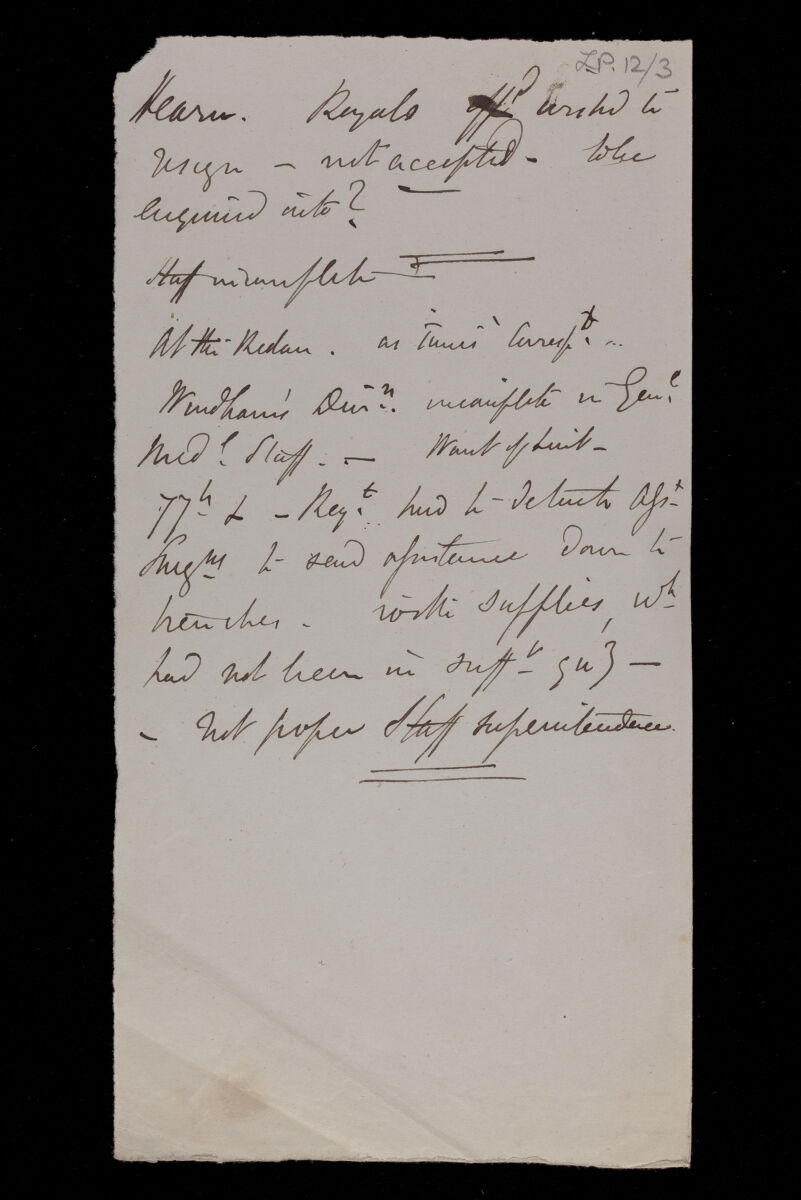 LP. 12/3
Hearn. Royals offd wished to
resign – not accepted – to be
enquired into?
Staff incomplete
At the Redan. as Times' Correspt. ..
Windham's Divn. incomplete in Genl.
Medl. Staff. – Want of Lint –
77h & – Regt. had to detach Asst
Surgns to send assistance down to
trenches – with supplies, wh
had not been in sufft –
– not proper Staff superintendence.